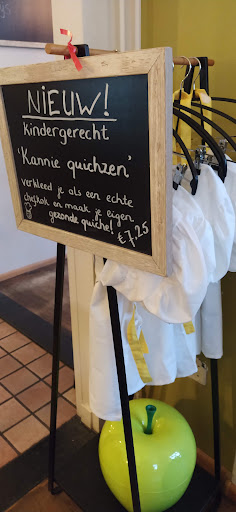 NiEUW!
kindergerecht
'Kannie quichzen'
verkleed je als een echte
chefkok en maak je eigen
gezonde quiche!
€7,25